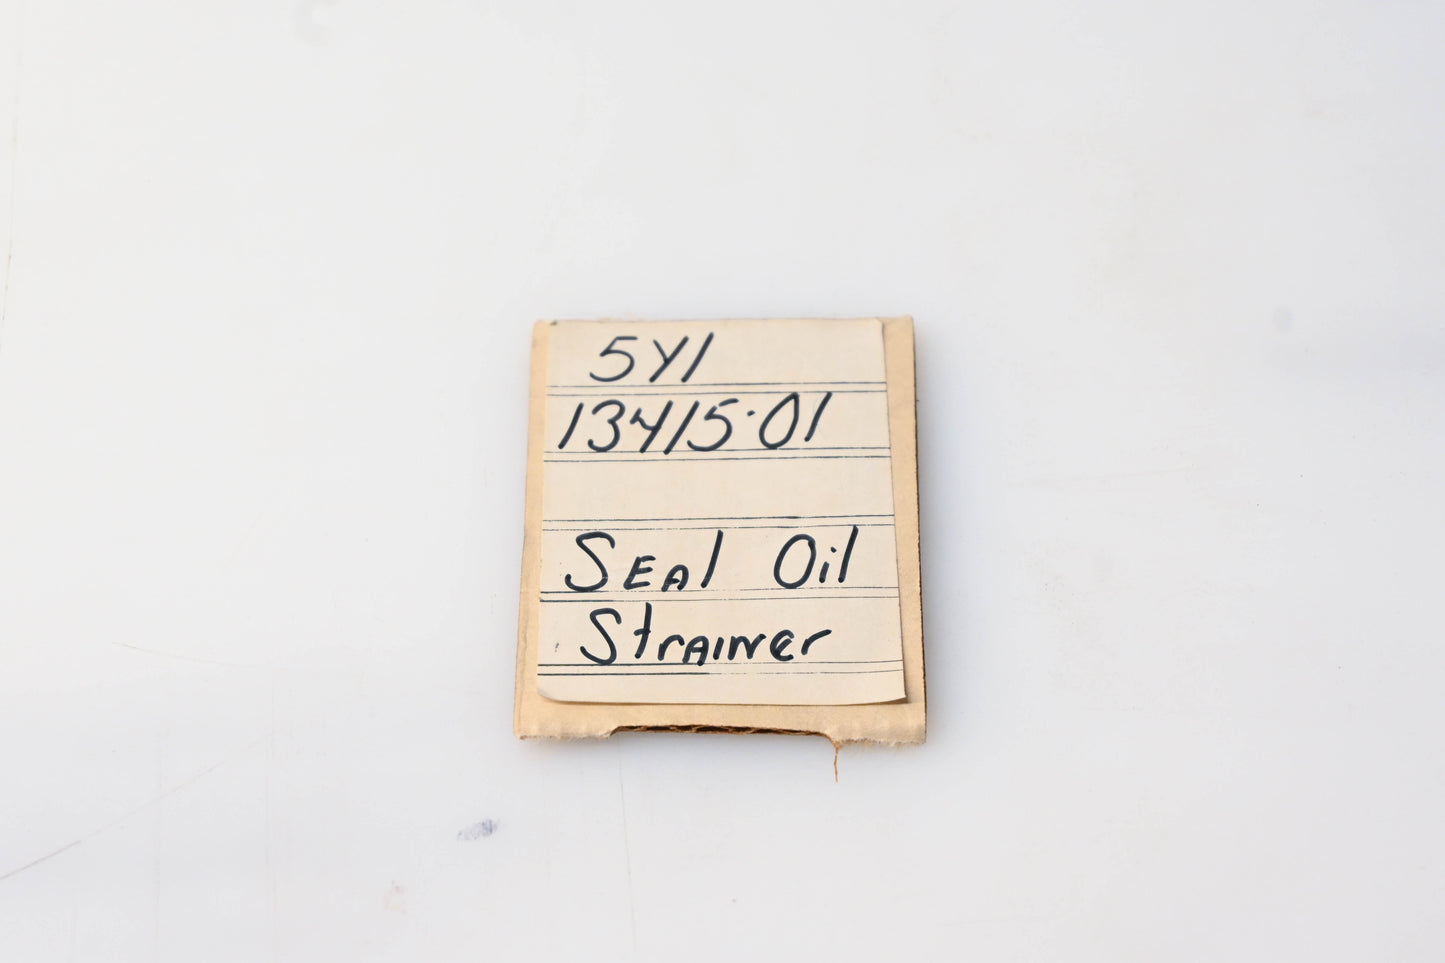 5Y1
13415·01
SEAl Oil
StrAINer